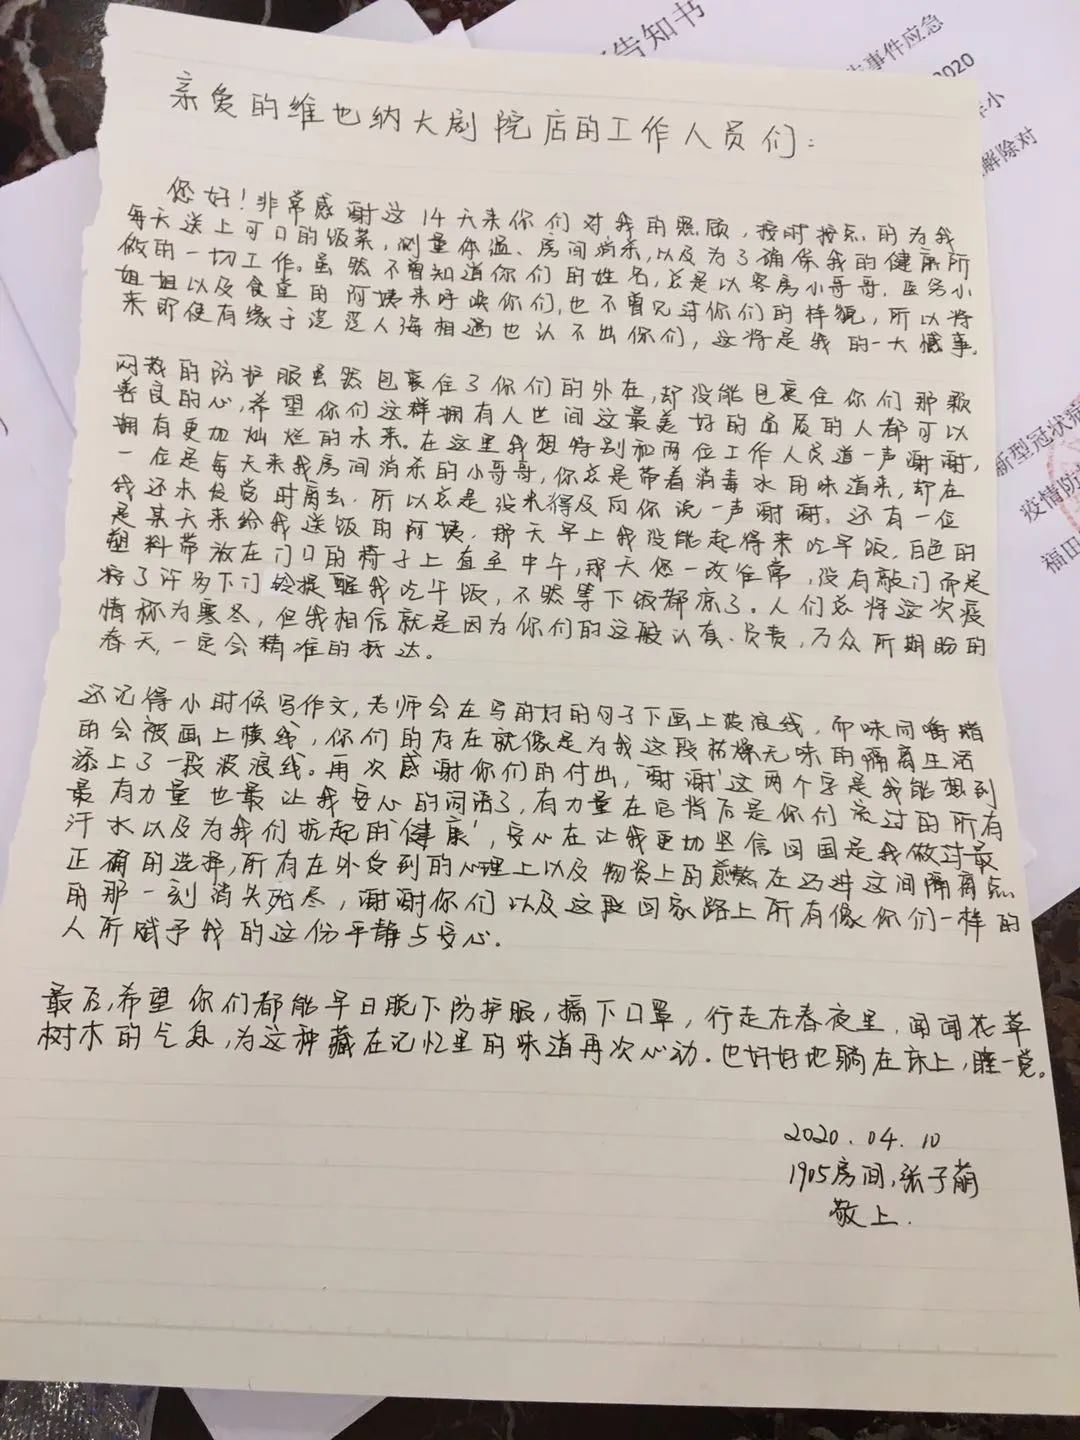 告知书
事件应急
2020
小
解除对
新型冠状病
疫情防
福田
亲爱的维也纳大剧院店的工作人员们：
您好！非常感谢这14天来你们对我的照顾，按时按点的为我
每天送上可口的饭菜，测量体温、房间消杀，以及为了确保我的健康所
做的一切工作。虽然不曾知道你们的姓名，总是以客房小哥哥，医务小
姐姐以及食堂的阿姨来呼唤你们，也不曾见过你们的样貌，所以将
来即使有缘于茫茫人海相遇也认不出你们，这将是我的一大憾事。
闷热的防护服虽然包裹住了你们的外在，却没能包裹住你们那颗
善良的心，希望你们这样拥有人世间这最美好的品质的人都可以
拥有更加灿烂的未来。在这里我想特别和两位工作人员道一声谢谢，
一位是每天来我房间消杀的小哥哥，你总是带着消毒水的味道来，却在
我还未发觉时离去，所以总是没来得及向你说一声谢谢。还有一位
是某天来给我送饭的阿姨，那天早上我没能起得来吃早饭，白色的
塑料带放在门口的椅子上直至中午，那天您一改往常，没有敲门而是
按了许多下门铃提醒我吃午饭，不然等下饭都凉了。人们总将这次疫
情称为寒冬，但我相信就是因为你们的这般认真、负责，万众所期盼的
春天，一定会精准的抵达。
还记得小时候写作文，老师会在写的好的句子下画上波浪线，而味同嚼蜡
的会被画上横线，你们的存在就像是为我这段枯燥无味的隔离生活
添上了一段波浪线。再次感谢你们的付出，‘谢谢’这两个字是我能想到
最有力量也最让我安心的词语了，有力量在它背后是你们流过的所有
汗水以及为我们抗起的‘健康’，安心在让我更切坚信回国是我做过最
正确的选择，所有在外受到的心理上以及物资上的煎熬在迈进这间隔离点
的那一刻消失殆尽，谢谢你们以及这趟回家路上所有像你们一样的
人所赋予我的这份平静与安心。
最后，希望你们都能早日脱下防护服，摘下口罩，行走在春夜里，闻闻花草
树木的气息，为这种藏在记忆里的味道再次心动。也好好地躺在床上，睡一觉。
2020.04.10
1905房间，张子萌
敬上.